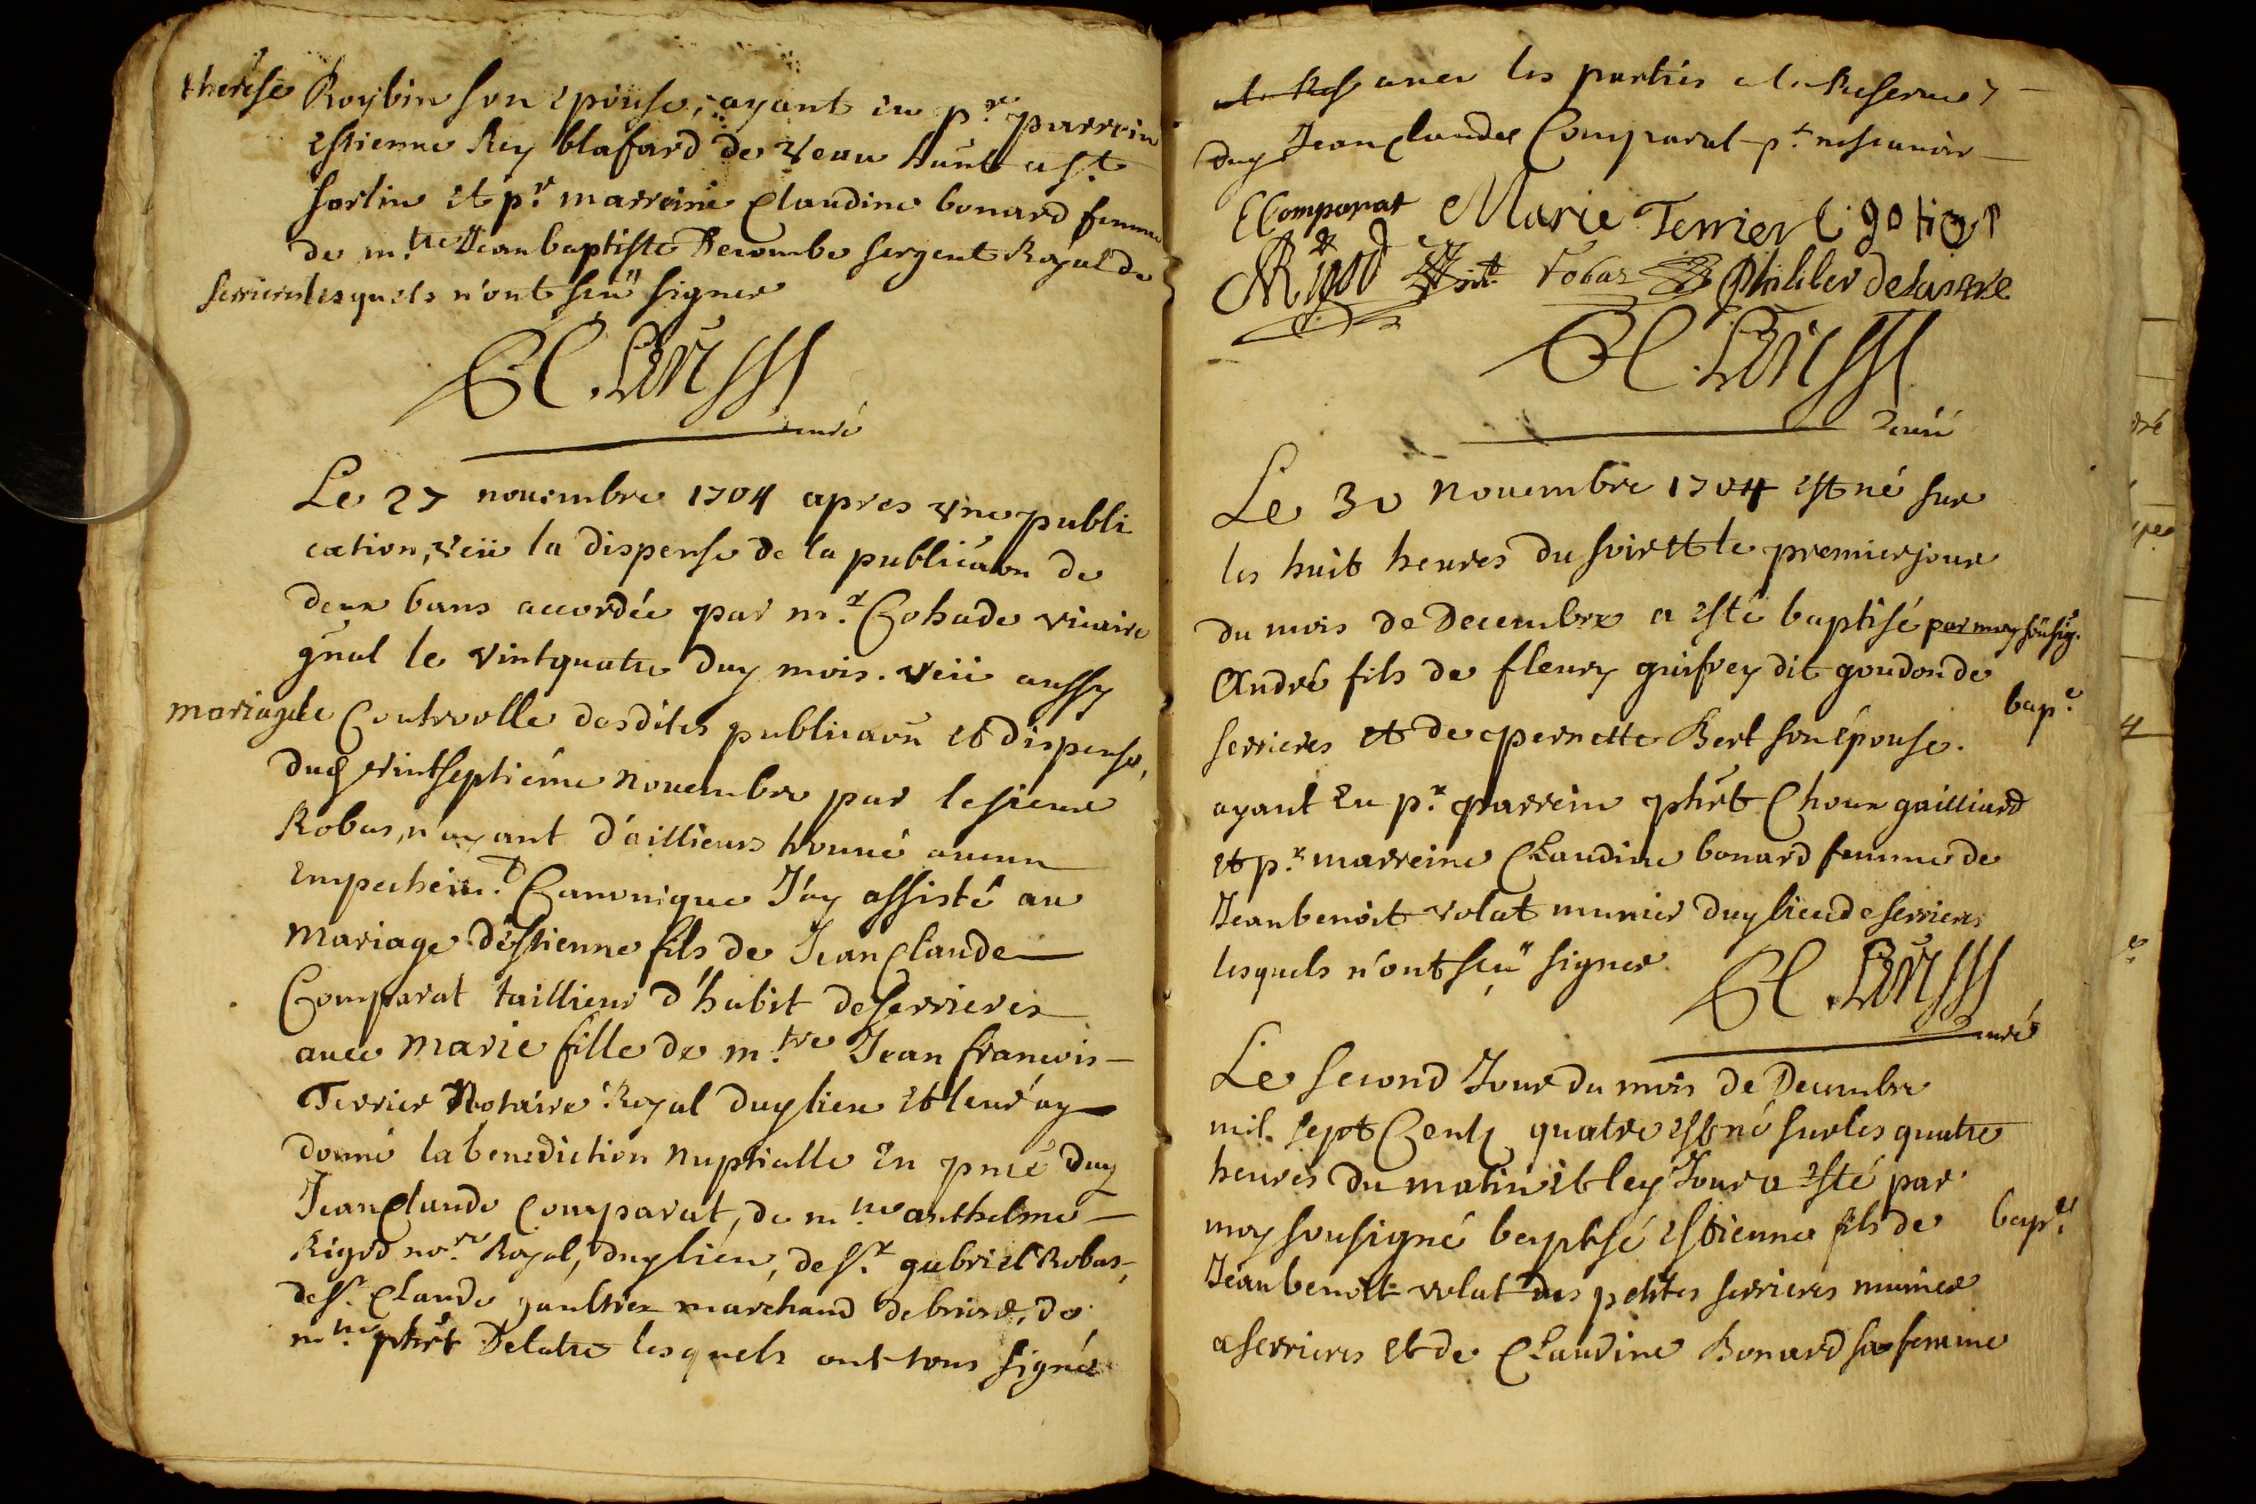 therese Roybin son epouse, ayant eu p.r parrein
estienne Rey blafard de veau haut a st
sorlin et p.r marreine Claudine bonard femme
de m.tre Jean baptiste Decombe sergent Royal de
serrieres lesquels n'ont sçeu signer
curé
Le 27 novembre 1704 apres vne publi
cation, veü la dispense de la publicaon de
deux bans accordée par m.r Cohade vicaire
gnal le vintquatre duy mois. veü aussy
mariage le Controolle desdites publicaon et dispense,
dud vintseptiéme novembre par le sieur
Robas, n'ayant d'aillieurs trouué aucun
empechem.t Canonique J'ay assisté au
mariage d'estienne fils de Jean Claude
Comparat taillieur d'habit de serrieres
auec marie fille de m.tre Jean francois
Terrier Notaire Royal duy lieu et leur ay
donné la benediction nuptialle en pnce duy
Jean Claude Comparat, de m.tre anthelme
Rigod no.re Royal, duy lieu, de s.r gabriel Robas,
de s.r Claude gaultier marchand de briord, de
m.tre phirt Delatre lesquels ont tous signé
auec les parties a la Reserue
duy Jean Claude Comparat p.r ne scauoir
E Comparat Marie Terrier C gotier
Rigod Robas Philiber delastre
curé
Le 30 nouembre 1704 est né sur
les huit heures du soir et le premier jour
du mois de Decembre a esté baptisé par moy sousig.
André fils de fleury guifrey dit goudon de
bap.e
serrieres et de pernette Bert son épouse.
ayant eu p.r parrein phirt Choux gailliard
et p.r marreine Claudine bonard femme de
Jean benoit volat munier duy lieu de serrieres
lesquels n'ont sçeu signer
curé
Le second Jour du mois de Decembre
mil sept Cents quatre est né sur les quatre
heures du matin et ley Jour a esté par
moy sousigné baptisé estienne fils de bap.e
Jean benoit volat des petites serrieres munier
a serrieres et de Claudine Bonard sa femme